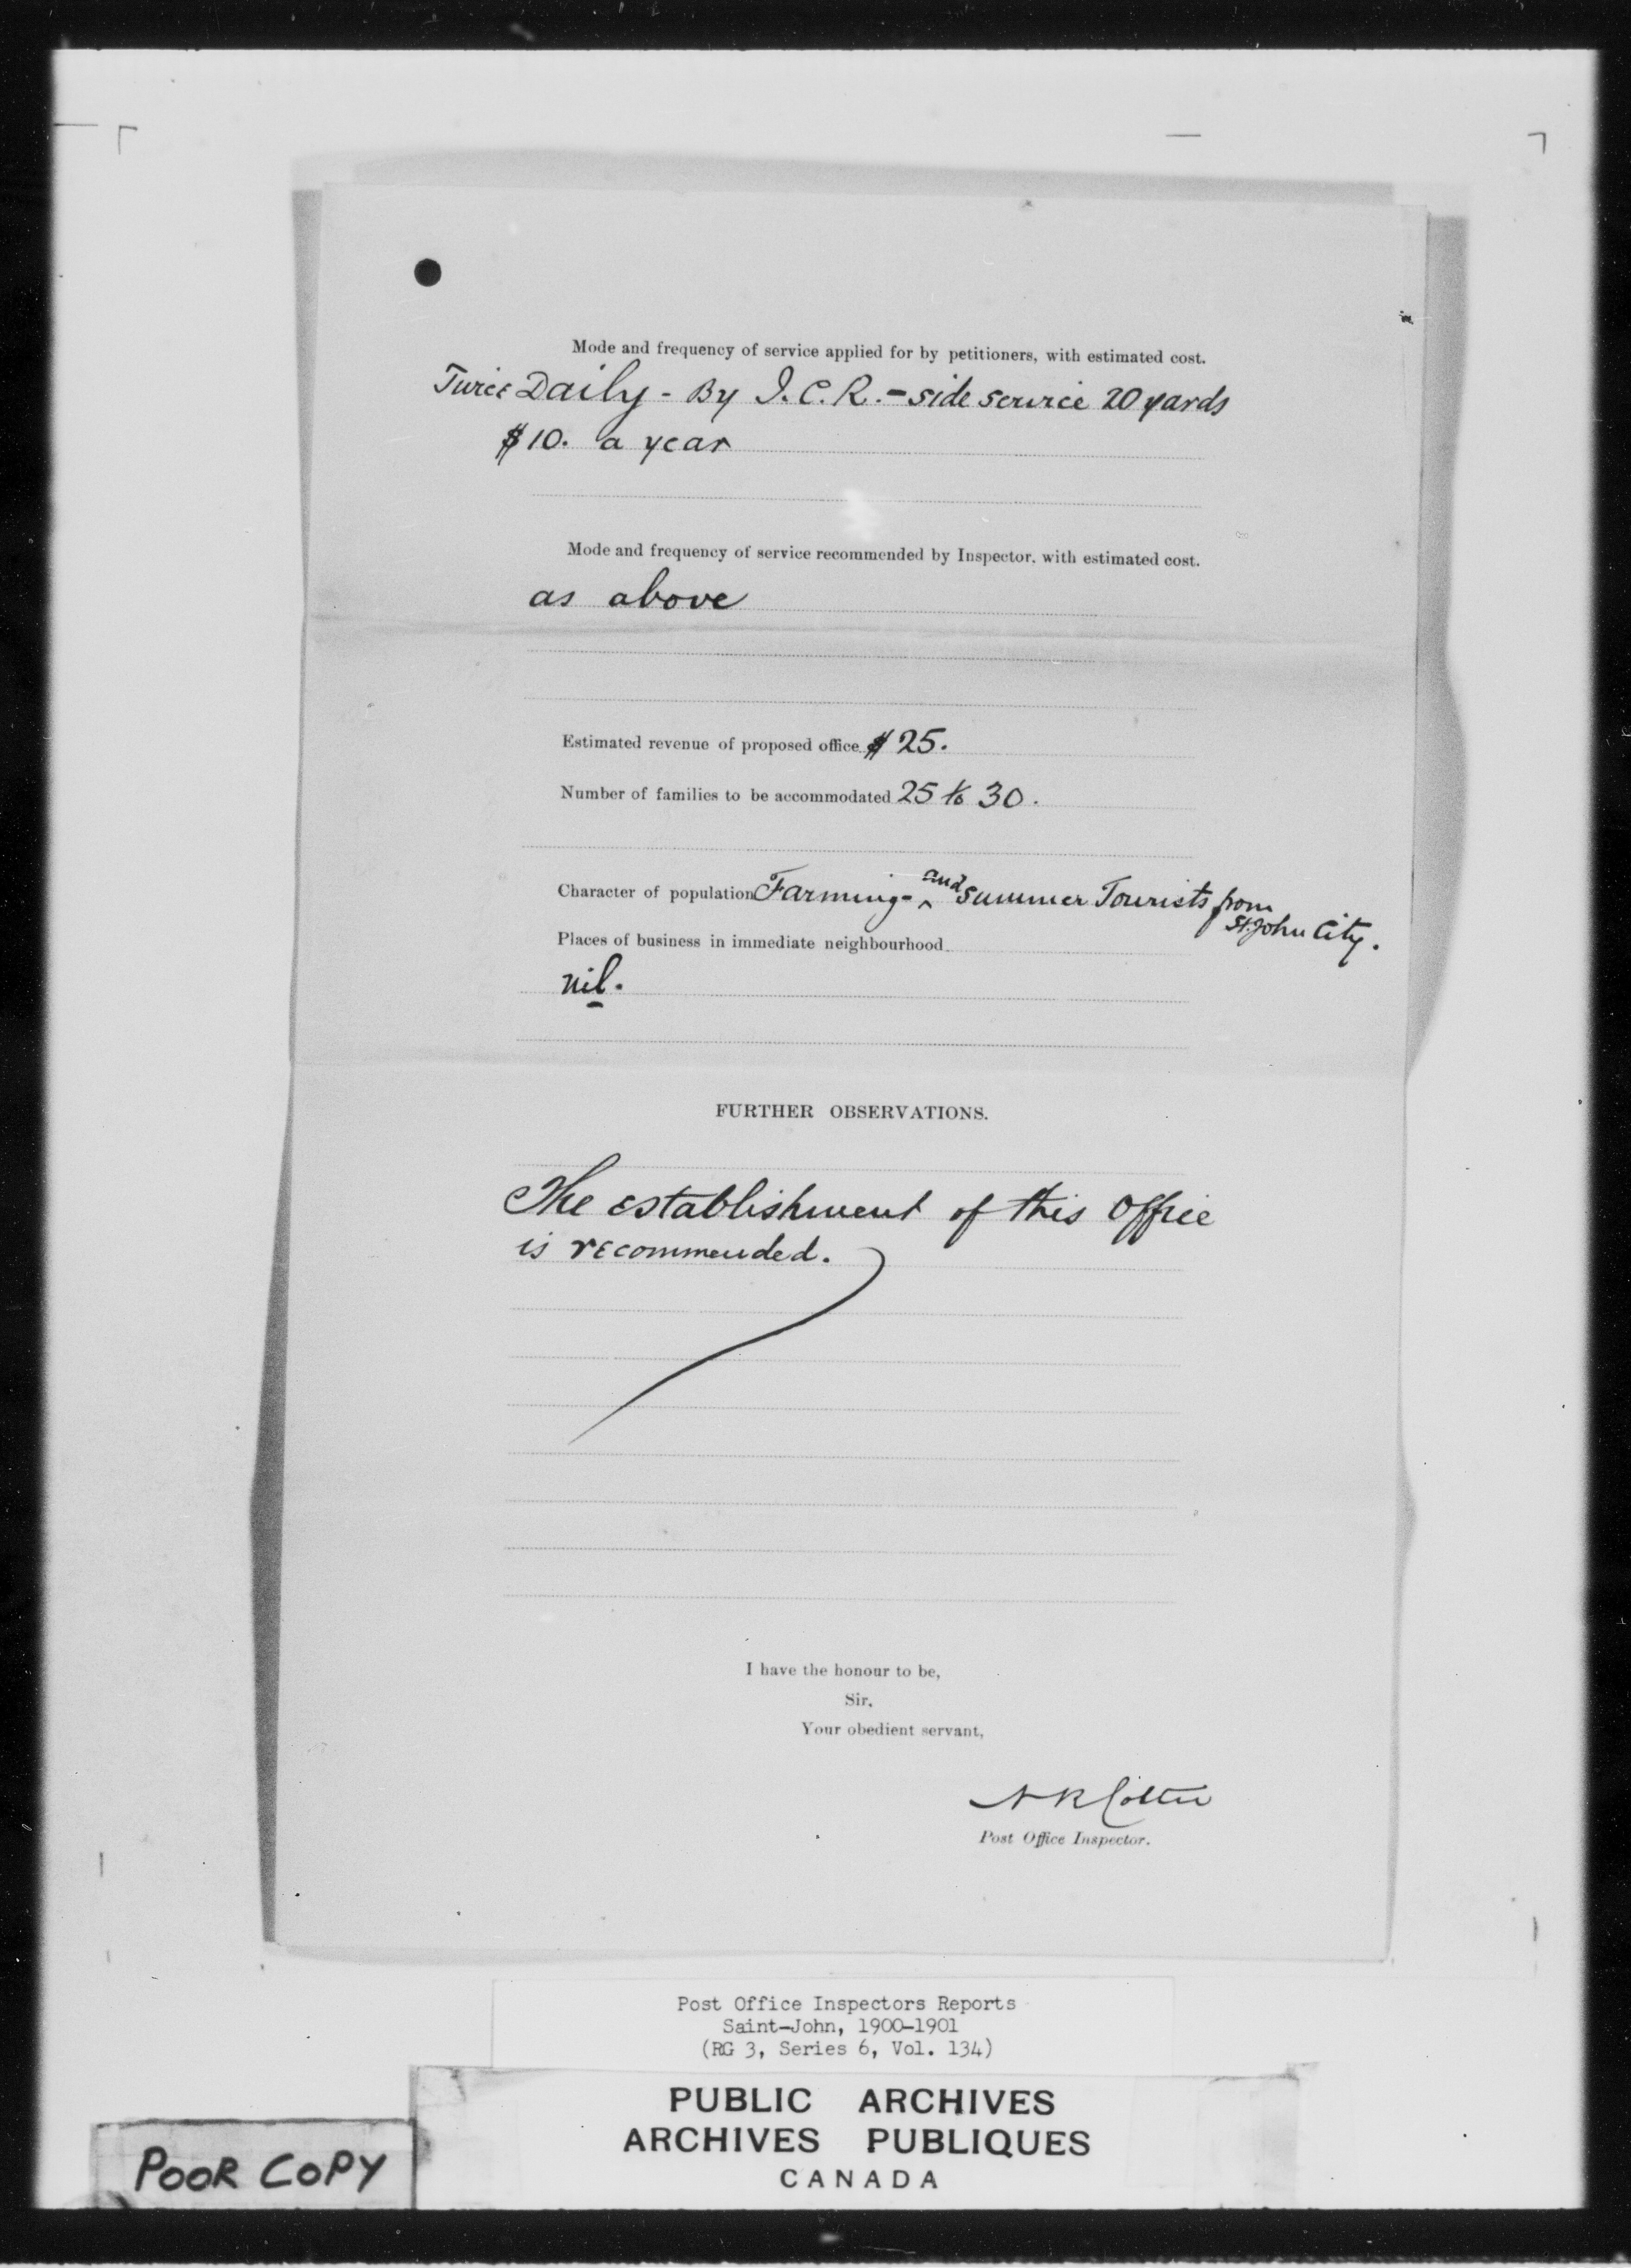 Mode and frequency of service applied for by petitioners, with estimated cost.
Twice Daily - By I.C.R. - side service 20 yards
$10. a year
Mode and frequency of service recommended by Inspector, with estimated cost.
as above
Estimated revenue of proposed office $25.
Number of families to be accommodated 25 to 30.
Character of population Farming - and summer Tourists from
St. John City.
Places of business in immediate neighbourhood
nil.
FURTHER OBSERVATIONS.
The establishment of this office
is recommended.
I have the honour to be,
Sir,
Your obedient servant,
N R Colter
Post Office Inspector.
Post Office Inspectors Reports
Saint-John, 1900-1901
(RG 3, Series 6, Vol. 134)
PUBLIC ARCHIVES
ARCHIVES PUBLIQUES
CANADA
POOR COPY